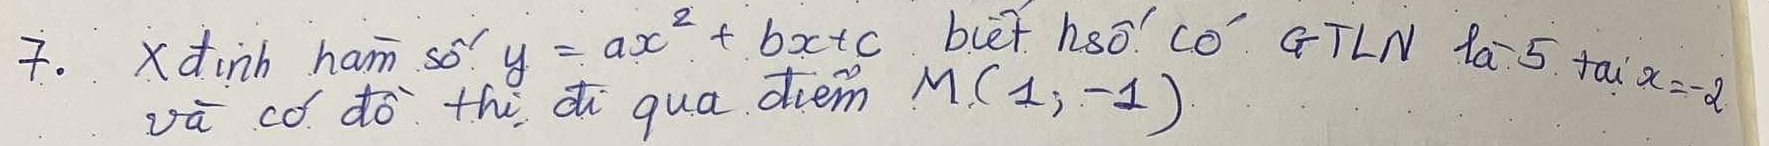 7. Xđịnh hàm số y = ax² + bx+c biết hsố có GTLN là 5 tại x=-2
và có đồ thị đi qua điểm M(1; -1)